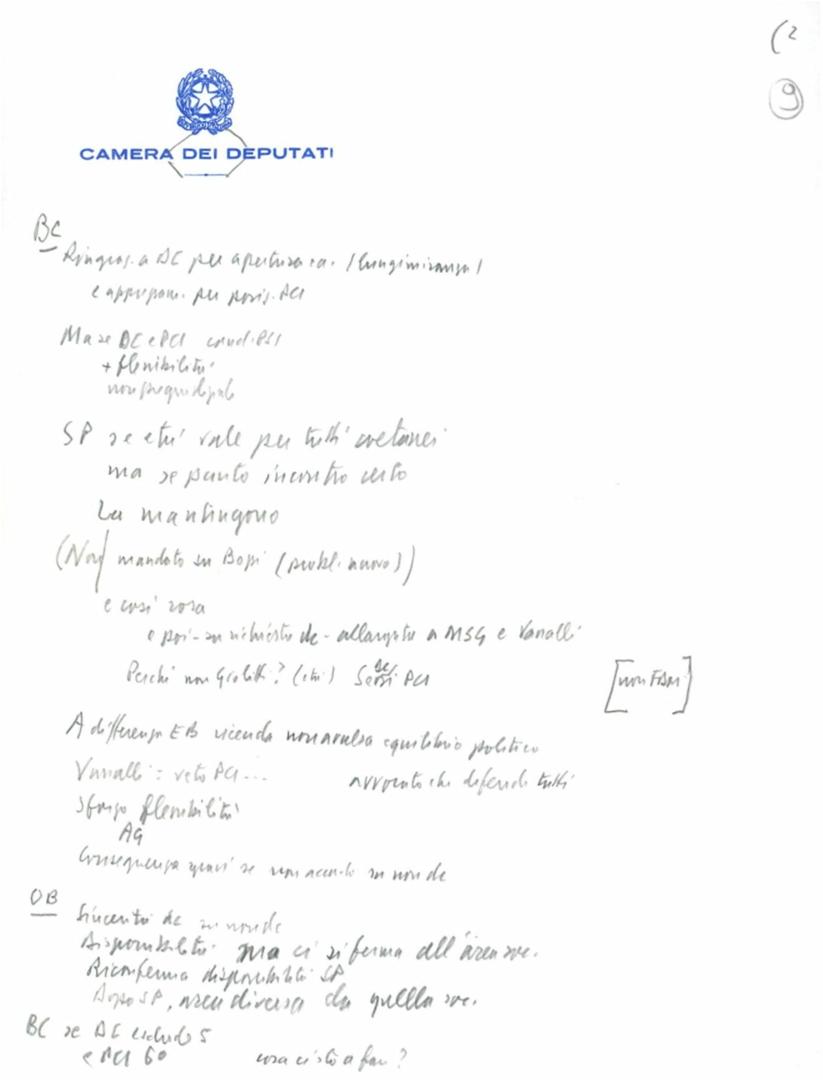 (2
9
CAMERA DEI DEPUTATI
BC
Ringraz. a DC per apertura ca. (lungimiranza)
e apprezzam. per posiz. PCI
Ma se DC e PCI PSI
+ flessibilità
non pregiudiziale
SP se età vale per tutti coetanei
ma se punto incontro certo
La mantengono
(Non mandato su Bozzi (probl. nuovo))
e così rosa
e poi - su richiesta dc - allargata a MSG e Vanalli
Perché non Giolitti? (età) PCI
[non FDM]
A differenza EB vicenda non avulsa equilibrio politico
Vanalli: veto PCI ...
avvocato che difende tutti
Sforzo flessibilità
AG
Conseguenza gravi se non accordo su non dc
OB
Sincerità dc su non dc
Disponibilità ma ci si ferma all'area soc.
Riconferma disponibilità SP
Dopo SP, area diversa da quella soc.
BC se DC esclude 5
e PCI 60 cosa ci sto a far?